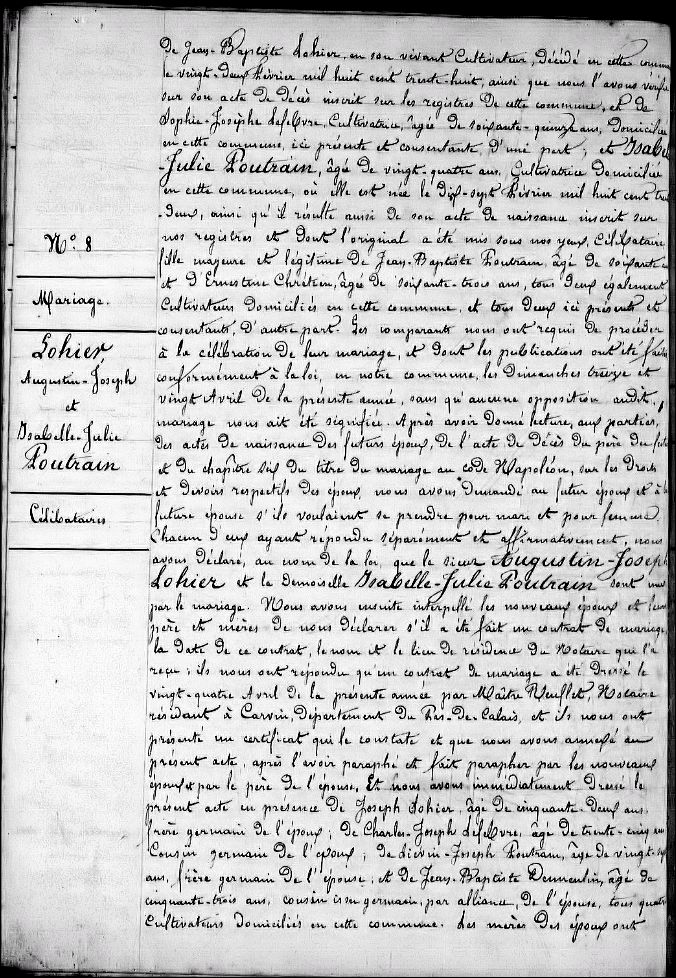 de Jean-Baptiste Lohier, en son vivant Cultivateur, décédé en cette commune
le vingt-deux Février mil huit cent trente-huit, ainsi que nous l'avons vérifié
sur son acte de décès inscrit sur les registres de cette commune, et de
Sophie-Josèphe Lefebvre, Cultivatrice, âgée de soixante-quinze ans, domiciliée
en cette commune, ici présente et consentante, d'une part; et Isabelle
-Julie Poutrain, âgée de vingt-quatre ans, Cultivatrice domiciliée
en cette commune, où elle est née le dix-sept Février mil huit cent trente
-deux, ainsi qu'il résulte aussi de son acte de naissance inscrit sur
nos registres et dont l'original a été mis sous nos yeux, Célibataire
fille majeure et légitime de Jean-Baptiste Poutrain, âgé de soixante
et d'Ernestine Chrétien, âgée de soixante-trois ans, tous deux également
Cultivateurs domiciliés en cette commune, et tous deux ici présents et
consentants, d'autre part. Les comparants nous ont requis de procéder
à la célébration de leur mariage, et dont les publications ont été faites
conformément à la loi, en notre commune, les dimanches treize et
vingt Avril de la présente année, sans qu'aucune opposition audit
mariage nous ait été signifiée. Après avoir donné lecture, aux parties,
des actes de naissance des futurs époux, de l'acte de décès du père du futur
et du chapitre six du titre du mariage au code Napoléon, sur les droits
et devoirs respectifs des époux, nous avons demandé au futur époux et à la
future épouse s'ils voulaient se prendre pour mari et pour femme
Chacun d'eux ayant répondu séparément et affirmativement, nous
avons déclaré, au nom de la loi, que le sieur Augustin-Joseph
Lohier et la demoiselle Isabelle-Julie Poutrain sont unis
par le mariage. Nous avons ensuite interpellé les nouveaux époux et leurs
père et mères de nous déclarer s'il a été fait un contrat de mariage,
la date de ce contrat, le nom et le lieu de résidence du Notaire qui l'a
reçu; ils nous ont répondu qu'un contrat de mariage a été dressé le
vingt-quatre Avril de la présente année par Maître Notaire
résidant à Carvin, département du Pas-de-Calais, et ils nous ont
présenté un certificat qui le constate et que nous avons annexé au
présent acte, après l'avoir paraphé et fait parapher par les nouveaux
époux et par le père de l'épouse, Et nous avons immédiatement dressé le
présent acte en présence de Joseph Lohier, âgé de cinquante-deux ans,
frère germain de l'époux; de Charles-Joseph Lefebvre, âgé de trente-cinq ans
Cousin germain de l'époux; de Liévin-Joseph Poutrain, âgé de vingt-sept
ans, frère germain de l'épouse; et de Jean-Baptiste Demeulin, âgé de
cinquante-trois ans, cousin issu germain, par alliance, de l'épouse, tous quatre
Cultivateurs domiciliés en cette commune. Les mères des époux ont
N° 8
Mariage.
Lohier,
Augustin-Joseph
et
Isabelle-Julie
Poutrain
Célibataires